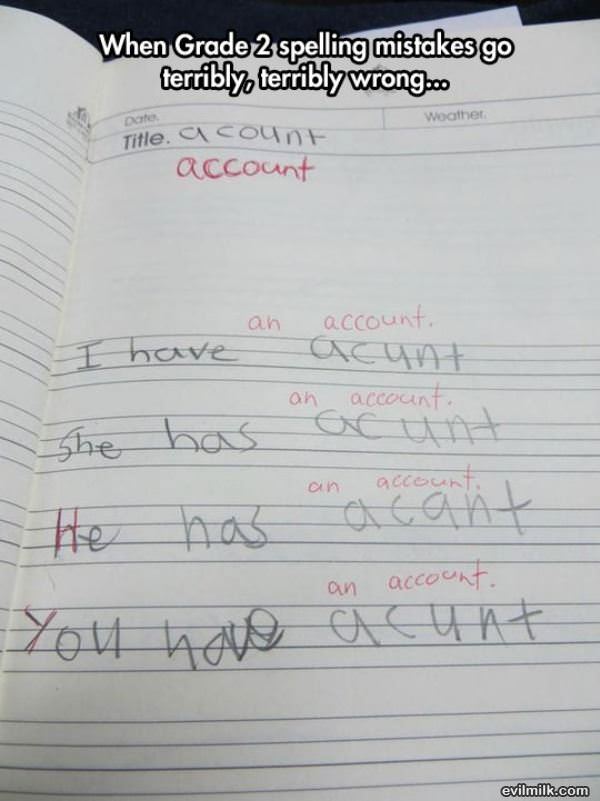 When Grade 2 spelling mistakes go
terribly, terribly wrong...
Date.
Weather.
Title. acount
account
an account.
I have acunt
an account.
She has acunt
an account.
He has acant
an account.
You have acunt
evilmilk.com